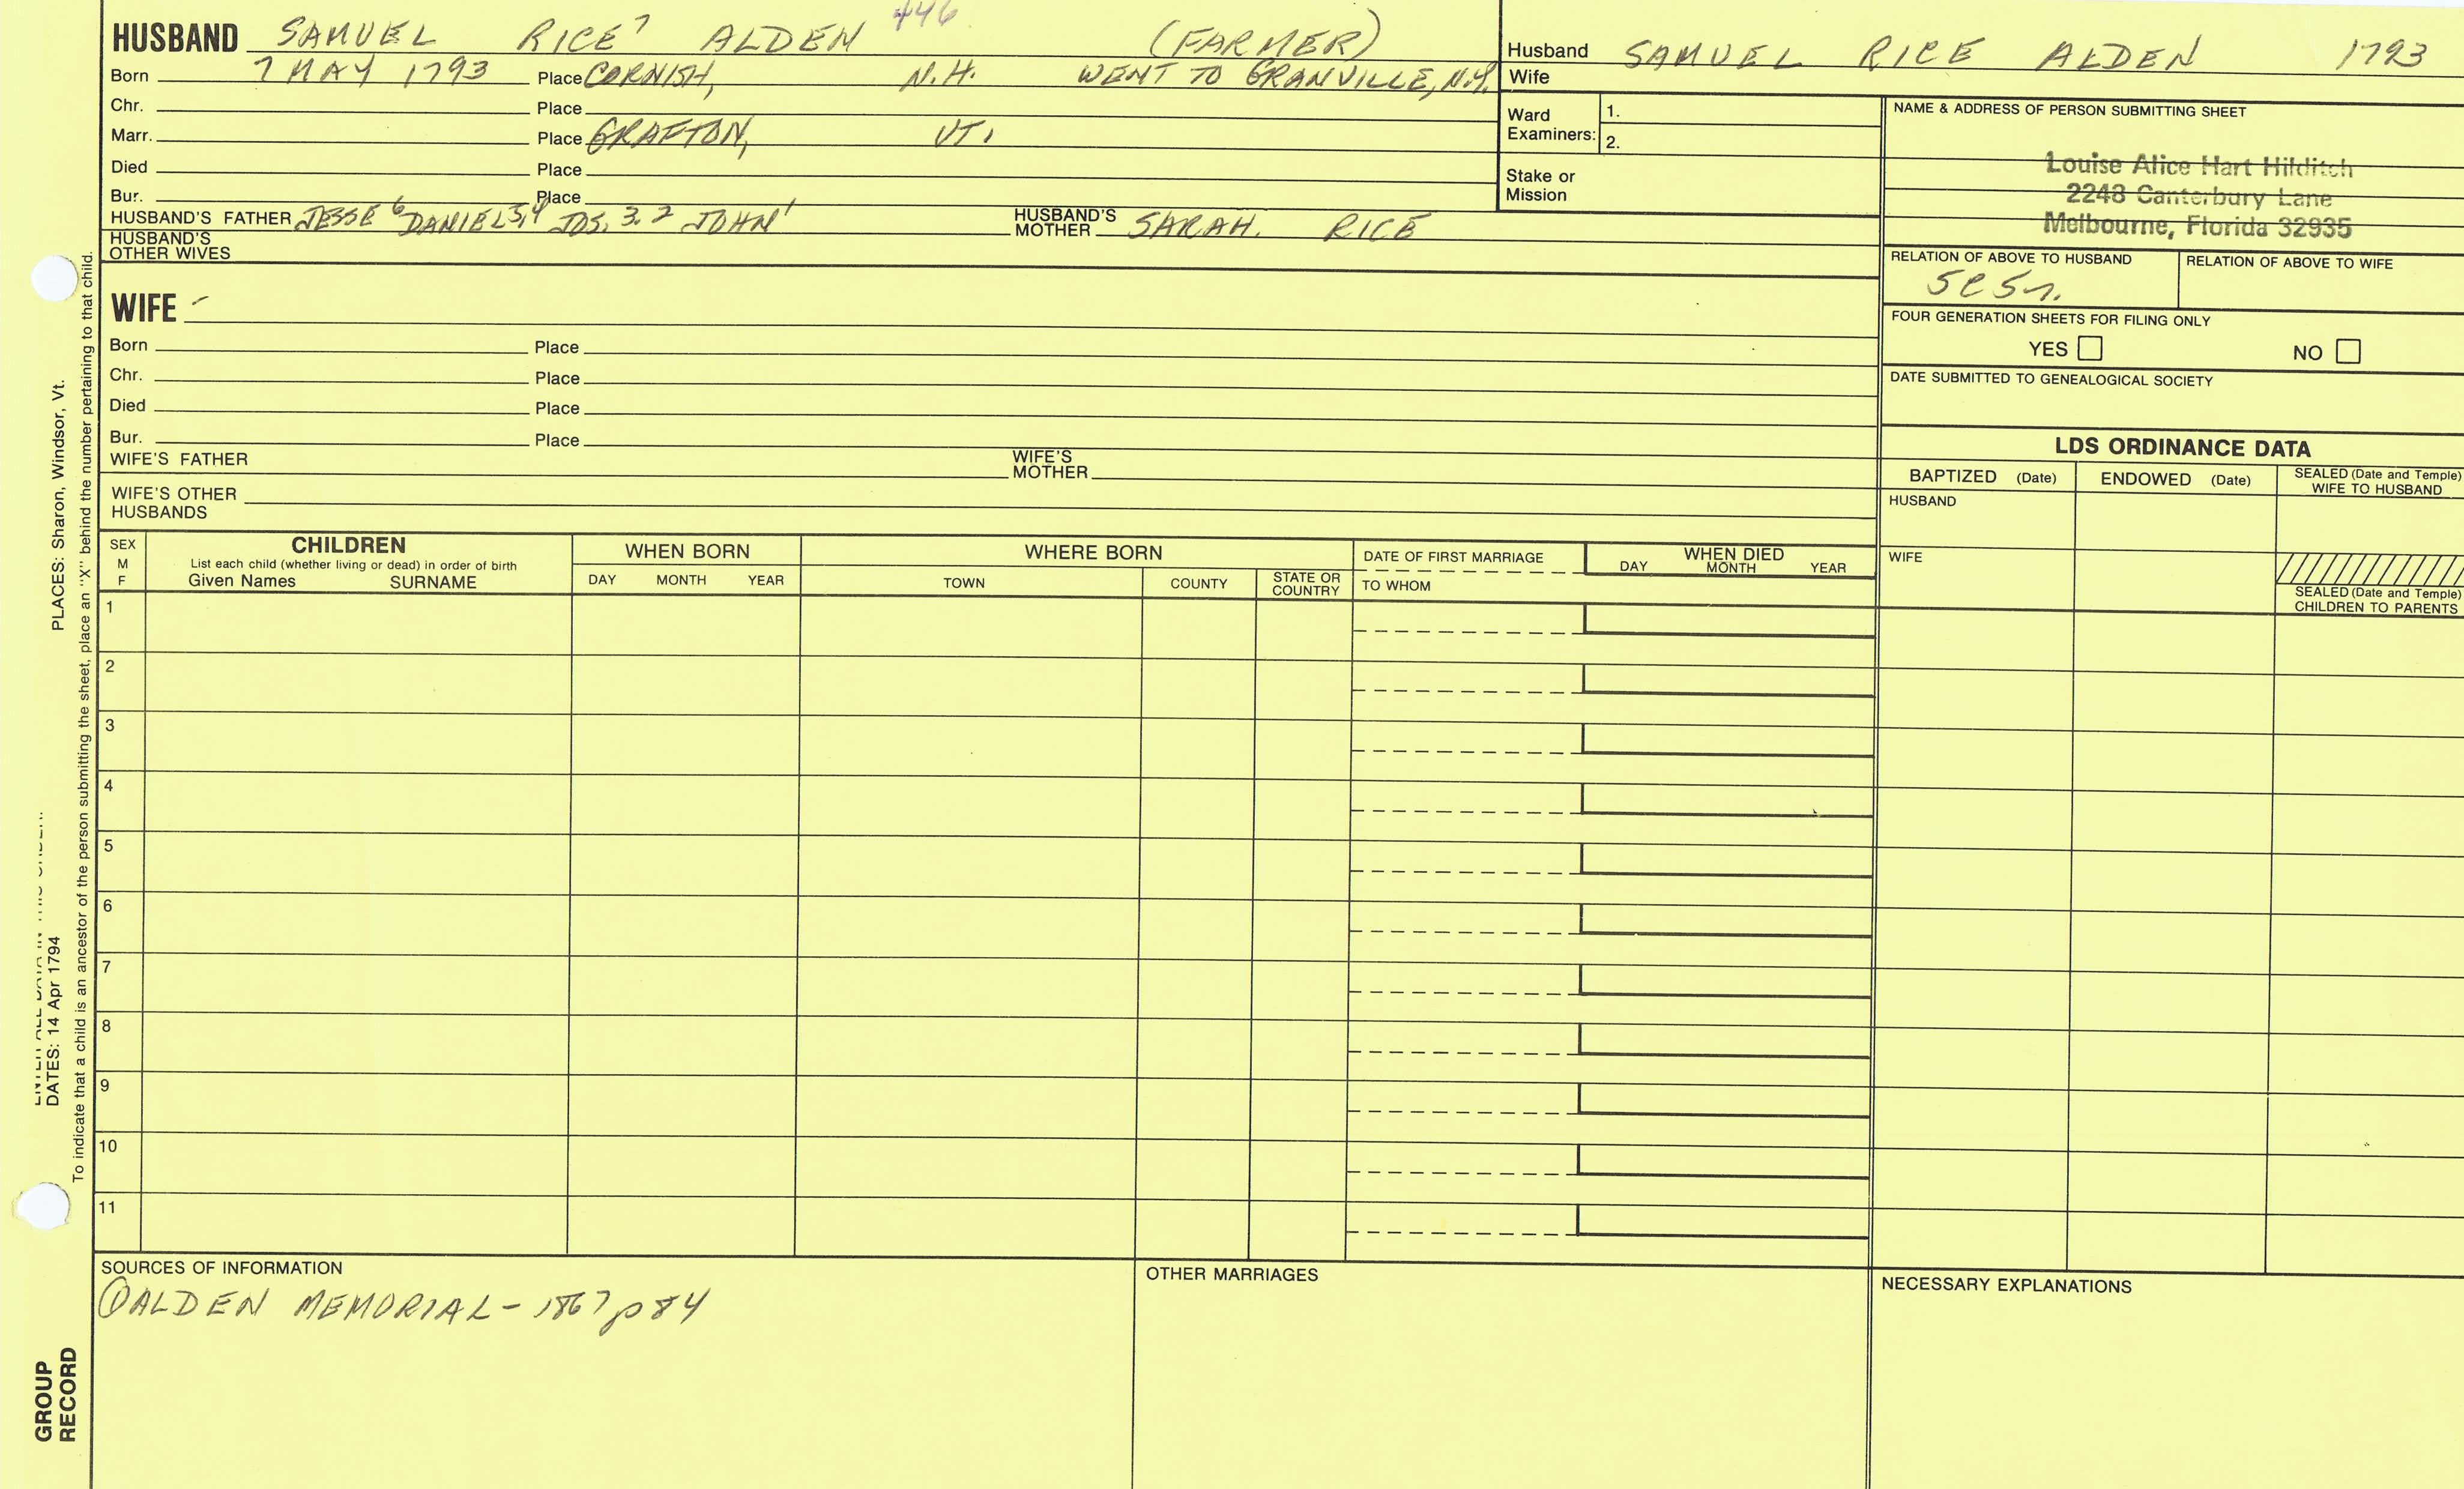 HUSBAND SAMUEL RICE⁷ ALDEN 446 (FARMER)
Born 7 MAY 1793 Place CORNISH, N.H. WENT TO GRANVILLE, N.Y.
Chr. Place
Marr. Place GRAFTON, VT.
Died Place
Bur. Place
HUSBAND'S FATHER JESSE⁶ DANIEL 5,4 JOS. 3,2 JOHN¹ HUSBAND'S MOTHER SARAH. RICE
HUSBAND'S OTHER WIVES
Husband SAMUEL RICE ALDEN 1793
Wife
Ward Examiners: 1.
2.
Stake or Mission
NAME & ADDRESS OF PERSON SUBMITTING SHEET
Louise Alice Hart Hilditch
2248 Canterbury Lane
Melbourne, Florida 32935
RELATION OF ABOVE TO HUSBAND RELATION OF ABOVE TO WIFE
FOUR GENERATION SHEETS FOR FILING ONLY
YES NO
DATE SUBMITTED TO GENEALOGICAL SOCIETY
WIFE -
Born Place
Chr. Place
Died Place
Bur. Place
WIFE'S FATHER WIFE'S MOTHER
WIFE'S OTHER HUSBANDS
LDS ORDINANCE DATA
BAPTIZED (Date) ENDOWED (Date) SEALED (Date and Temple) WIFE TO HUSBAND
HUSBAND
WIFE
SEALED (Date and Temple) CHILDREN TO PARENTS
SEX M F
CHILDREN
List each child (whether living or dead) in order of birth
Given Names SURNAME
WHEN BORN
DAY MONTH YEAR
WHERE BORN
TOWN COUNTY STATE OR COUNTRY
DATE OF FIRST MARRIAGE
TO WHOM
WHEN DIED
DAY MONTH YEAR
1
2
3
4
5
6
7
8
9
10
11
SOURCES OF INFORMATION
① ALDEN MEMORIAL - 1867 p 84
OTHER MARRIAGES
NECESSARY EXPLANATIONS
PLACES: Sharon, Windsor, Vt.
DATES: 14 Apr 1794
To indicate that a child is an ancestor of the person submitting the sheet, place an "X" behind the number pertaining to that child.
GROUP
RECORD